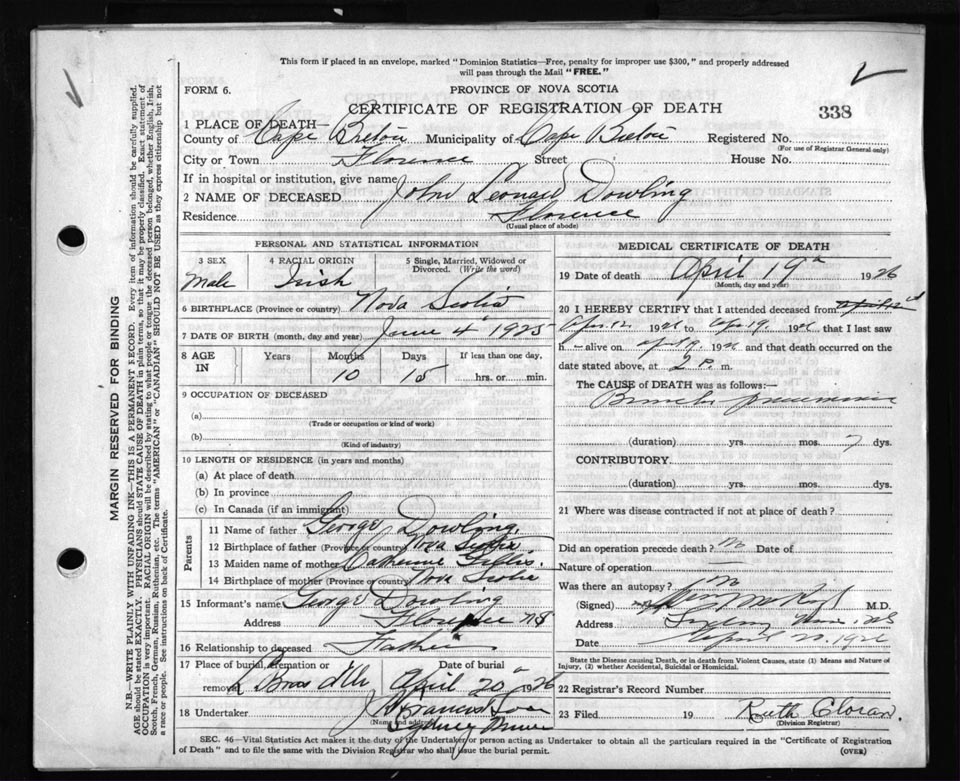 This form if placed in an envelope, marked "Dominion Statistics—Free, penalty for improper use $300," and properly addressed
will pass through the Mail "FREE."
FORM 6.
PROVINCE OF NOVA SCOTIA
CERTIFICATE OF REGISTRATION OF DEATH
338
1 PLACE OF DEATH—
County of Cape Breton Municipality of Cape Breton Registered No.
(For use of Registrar General only)
City or Town Florence Street House No.
If in hospital or institution, give name
2 NAME OF DECEASED John Leonard Dowling
Residence Florence
(Usual place of abode)
PERSONAL AND STATISTICAL INFORMATION
3 SEX 4 RACIAL ORIGIN 5 Single, Married, Widowed or
Divorced. (Write the word)
Male Irish
6 BIRTHPLACE (Province or country) Nova Scotia
7 DATE OF BIRTH (month, day and year) June 4 1925
8 AGE IN Years Months Days If less than one day,
10 15 hrs. or min.
9 OCCUPATION OF DECEASED
(a)
(Trade or occupation or kind of work)
(b)
(Kind of industry)
10 LENGTH OF RESIDENCE (in years and months)
(a) At place of death
(b) In province
(c) In Canada (if an immigrant)
Parents
11 Name of father George Dowling.
12 Birthplace of father (Province or country) Nova Scotia
13 Maiden name of mother Catherine Gillis.
14 Birthplace of mother (Province or country) Nova Scotia
15 Informant's name George Dowling
Address Florence NS
16 Relationship to deceased Father
17 Place of burial, cremation or Date of burial
removal Bras d'Or April 20 1926
18 Undertaker Francis
(Name and address)
Sydney Mines
MEDICAL CERTIFICATE OF DEATH
19 Date of death April 19 1926
(Month, day and year)
20 I HEREBY CERTIFY that I attended deceased from
Apr. 12 1926 to Apr 19 1926 that I last saw
h — alive on April 19 1926 and that death occurred on the
date stated above, at 2 P. m.
The CAUSE of DEATH was as follows:—
Broncho pneumonia
(duration) yrs. mos. 7 dys.
CONTRIBUTORY.
(duration) yrs. mos. dys.
21 Where was disease contracted if not at place of death?
Did an operation precede death? No Date of
Nature of operation
Was there an autopsy? No
(Signed) M.D.
Address Sydney Mines, NS
Date April 20, 1926
State the Disease causing Death, or in death from Violent Causes, state (1) Means and Nature of
Injury, (2) whether Accidental, Suicidal or Homicidal.
22 Registrar's Record Number
23 Filed 19 Ruth Cloran.
(Division Registrar)
SEC. 46—Vital Statistics Act makes it the duty of the Undertaker or person acting as Undertaker to obtain all the particulars required in the "Certificate of Registration
of Death" and to file the same with the Division Registrar who shall issue the burial permit.
(OVER)
MARGIN RESERVED FOR BINDING
N.B.—WRITE PLAINLY WITH UNFADING INK—THIS IS A PERMANENT RECORD. Every item of information should be carefully supplied.
AGE should be stated EXACTLY. PHYSICIANS should STATE CAUSE OF DEATH in plain terms, so that it may be properly classified. Exact statement of
OCCUPATION is very important. RACIAL ORIGIN will be described by stating to what people or tongue the deceased person belonged, whether English, Irish,
Scotch, French, German, Russian, Ruthenian, etc. The terms "AMERICAN" or "CANADIAN" SHOULD NOT BE USED as they express citizenship but not
a race or people. See instructions on back of Certificate.